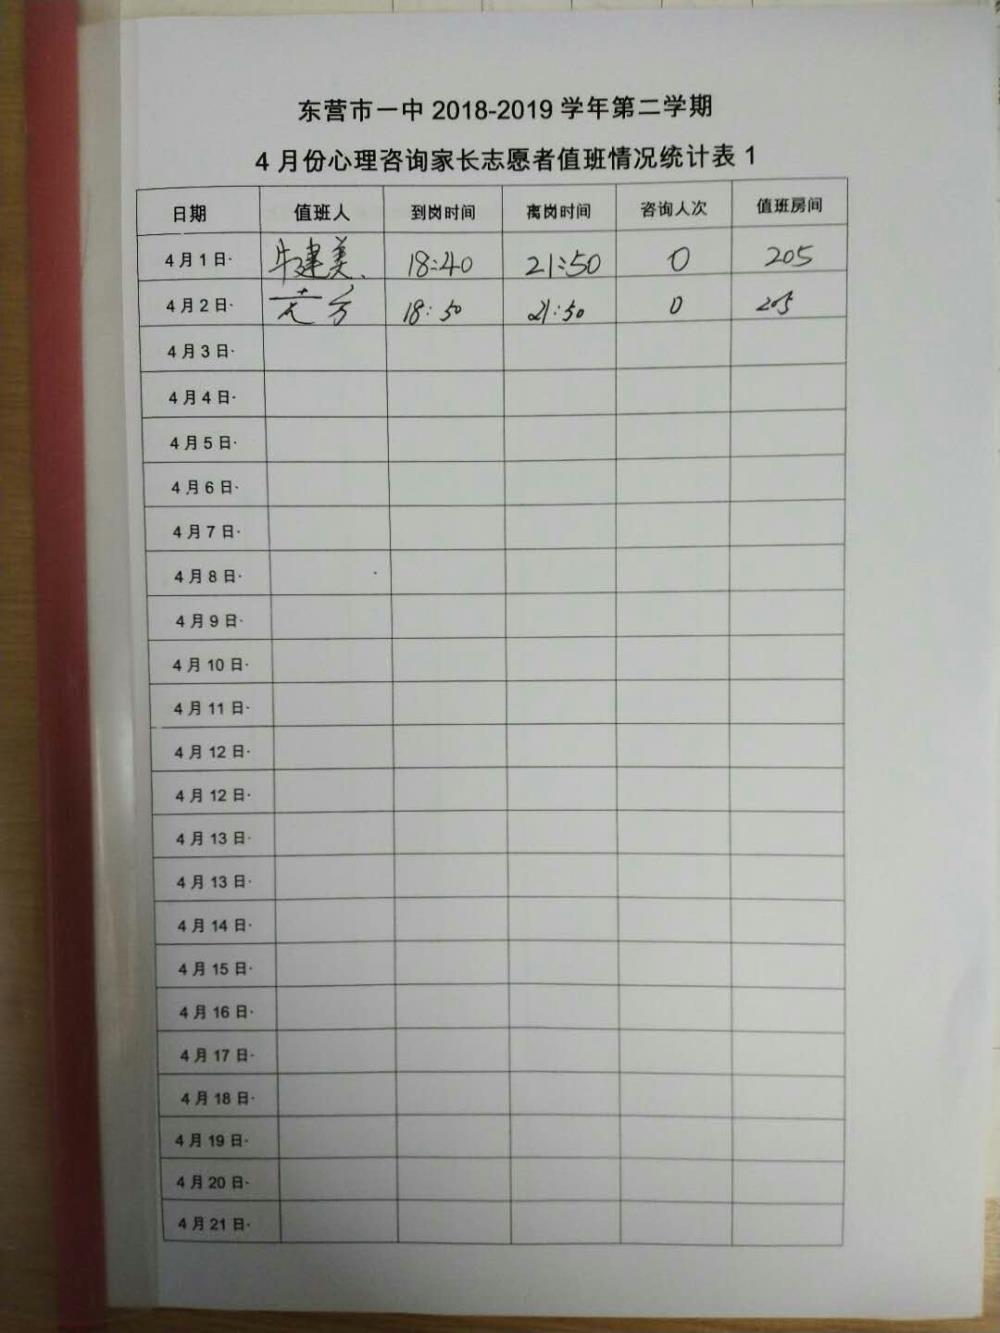 东营市一中 2018-2019 学年第二学期
4 月份心理咨询家长志愿者值班情况统计表 1
日期 值班人 到岗时间 离岗时间 咨询人次 值班房间
4 月 1 日· 牛建美 18:40 21:50 0 205
4 月 2 日· 18:50 21:50 0 205
4 月 3 日·
4 月 4 日·
4 月 5 日·
4 月 6 日·
4 月 7 日·
4 月 8 日·
4 月 9 日·
4 月 10 日·
4 月 11 日·
4 月 12 日·
4 月 12 日·
4 月 13 日·
4 月 13 日·
4 月 14 日·
4 月 15 日·
4 月 16 日·
4 月 17 日·
4 月 18 日·
4 月 19 日·
4 月 20 日·
4 月 21 日·